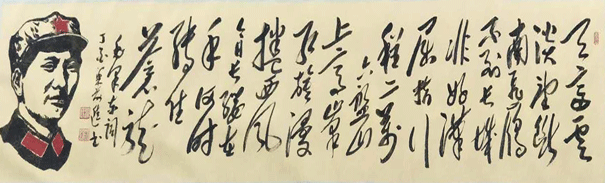 天高云
淡望断
南飞雁
不到长城
非好汉
屈指行
程二万
六盘山
上高峰
红旗漫
捲西风
今日长缨在
手何时
缚住
苍龙
毛泽东词
丁亥
书